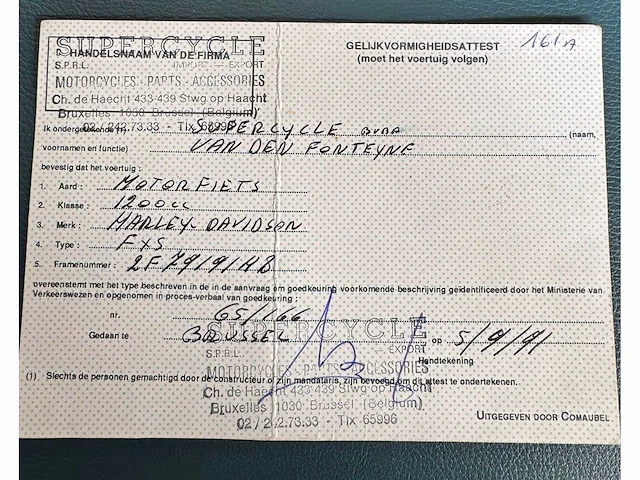 161A
SUPERCYCLE
HANDELSNAAM VAN DE FIRMA
S.P.R.L. IMPORT — EXPORT
MOTORCYCLES - PARTS - ACCESSORIES
Ch. de Haecht 433-439 Stwg op Haacht
Bruxelles 1030 Brussel (Belgium)
02 / 242.73.33 - Tlx 65996
GELIJKVORMIGHEIDSATTEST
(moet het voertuig volgen)
Ik ondergetekende (1) SUPERCYCLE BVBA (naam,
voornamen en functie) VAN DEN FONTEYNE
bevestig dat het voertuig :
1. Aard : MOTORFIETS
2. Klasse : 1200cc
3. Merk : HARLEY-DAVIDSON
4. Type : FXS
5. Framenummer : 2F79191H8
overeenstemt met het type beschreven in de in de aanvraag om goedkeuring voorkomende beschrijving geïdentificeerd door het Ministerie van
Verkeerswezen en opgenomen in proces-verbaal van goedkeuring :
nr. 65/166
Gedaan te BRUSSEL op 5/9/91
Handtekening
SUPERCYCLE
S.P.R.L. EXPORT
MOTORCYCLES - PARTS - ACCESSORIES
(1) Slechts de personen gemachtigd door de constructeur of zijn mandataris, zijn bevoegd om dit attest te ondertekenen.
Ch. de Haecht 433-439 Stwg op Haacht
Bruxelles 1030 Brussel (Belgium)
02 / 242.73.33 - Tlx 65996
UITGEGEVEN DOOR COMAUBEL